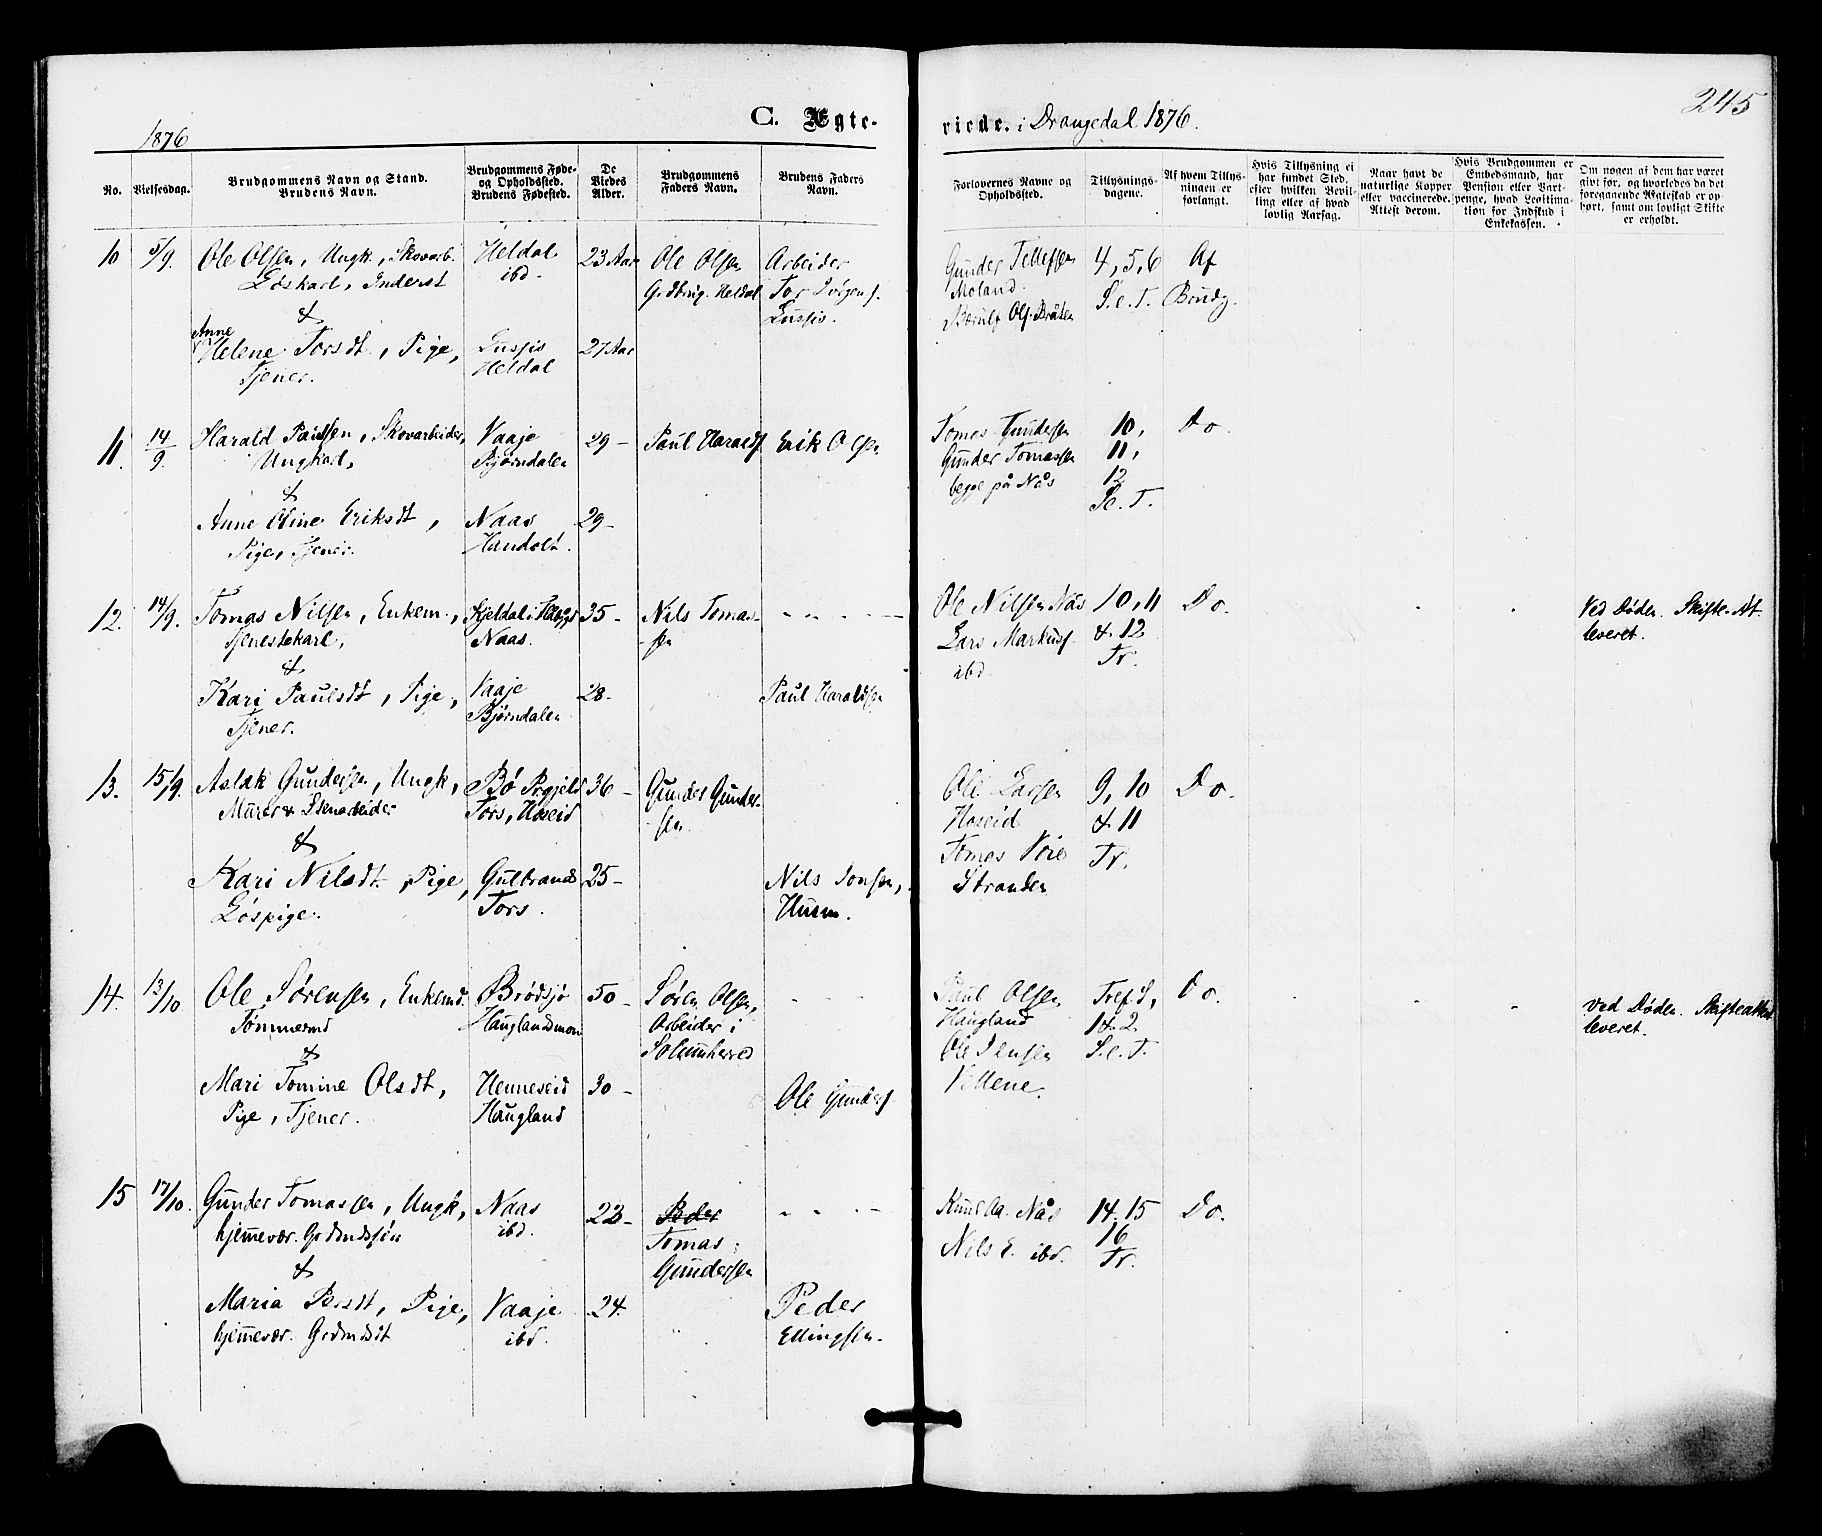 245
1876
C. Ægte-
viede. i Drangedal 1876.
No.
Vielsesdag.
Brudgommens Navn og Stand.
Brudens Navn.
Brudgommens Føde-
og Opholdssted.
Brudens Fødested.
De
Viedes
Alder.
Brudgommens
Faders Navn.
Brudens Faders
Navn.
Forlovernes Navne og
Opholdssted.
Tillysnings-
dagene.
Af hvem Tillys-
ningen er
forlangt.
Hvis Tillysning ei
har fundet Sted,
efter hvilken Bevil-
ling eller af hvad
lovlig Aarsag.
Naar havt de
naturlige Kopper
eller vaccinerede.
Attest derom.
Hvis Brudgommen er
Embedsmand, har
Pension eller Vart-
penge, hvad Legitima-
tion for Indskud i
Enkekassen.
Om nogen af dem har været
gift før, og hvorledes da det
foregaaende Ægteskab er op-
hørt, samt om lovligt Skifte
er erholdt.
10 5/9. Ole Olsen, Ungk., Skovarb.
Løskarl, Inderst
&
Anne
Helene Torsdt., Pige,
Tjener.
Heldal
ibd.
Lussis
Heldal
23 Aar
27 Aar
Ole Olsen
Grdbrug. Heldal
Arbeider
Tor Jörgens.
Lussis.
Gunder Tellefsen
Moland.
Ols. Bråten
4, 5, 6
S. e. T.
Af
Brudg.
11. 14/9. Harald Paulsen, Skovarbeider,
Ungkarl,
&
Anne Oline Eriksdt,
Pige, Tjener.
Vaaje
Bjørndalen
Naas
29 –
29 –
Paul Haralds.
Erik Olsen
Tomas Gundersen
Gunder Tomassen
begge på Nås
10,
11,
12
S. e. T.
Do.
12. 14/9. Tomas Nilsen, Enkem.,
Tjenestekarl,
&
Kari Paulsdt, Pige,
Tjener.
Naas.
Vaaje
Bjørndalen
35 –
28 –
Nils Tomas-
sen
Paul Haraldsen
Ole Nilsen Nås
Lars Markuss.
ibd
10, 11
& 12
Tr.
Do.
Ved Døden. Skifte-At.
leveret.
13. 15/9. Aslak Gundersen, Ungk,
Murer & Stenarbeider
&
Kari Nilsdt., Pige,
Løspige.
Bø Prgjeld
Tors, Hoseid
Gulbrands
Tors.
36 –
25 –
Gunder Gunder-
sen
Nils Jonsen,
Husm.
Ole Larsen
Hoseid
Tomas Voie
Stranden
9, 10
& 11
Tr.
Do.
14. 13/10 Ole Sørensen, Enkemd.
Tømmermd
&
Mari Tomine Olsdt,
Pige, Tjener.
Brødsjø
Hauglandsmoen
Henneseid
Haugland
50 –
30 –
Søren Olsen,
Arbeider i
Solumherred
Ole Gunders.
Paul Olsen
Haugland
Ole Jensen
Vellene.
Tref. S,
1 & 2
S. e. T.
Do.
Ved Døden. Skifteattest
leveret.
15 17/10. Gunder Tomassen, Ungk,
hjemmevær. Grdmdssön
&
Maria Persdt, Pige,
hjemmevær. Grdmdsdt
Naas
ibd.
Vaaje
ibd.
23 –
24.
Peder
Tomas
Gundersen
Peder
Ellingsen.
Knut Aa. Nås
Nils E. ibd.
14. 15
16
Tr.
Do.